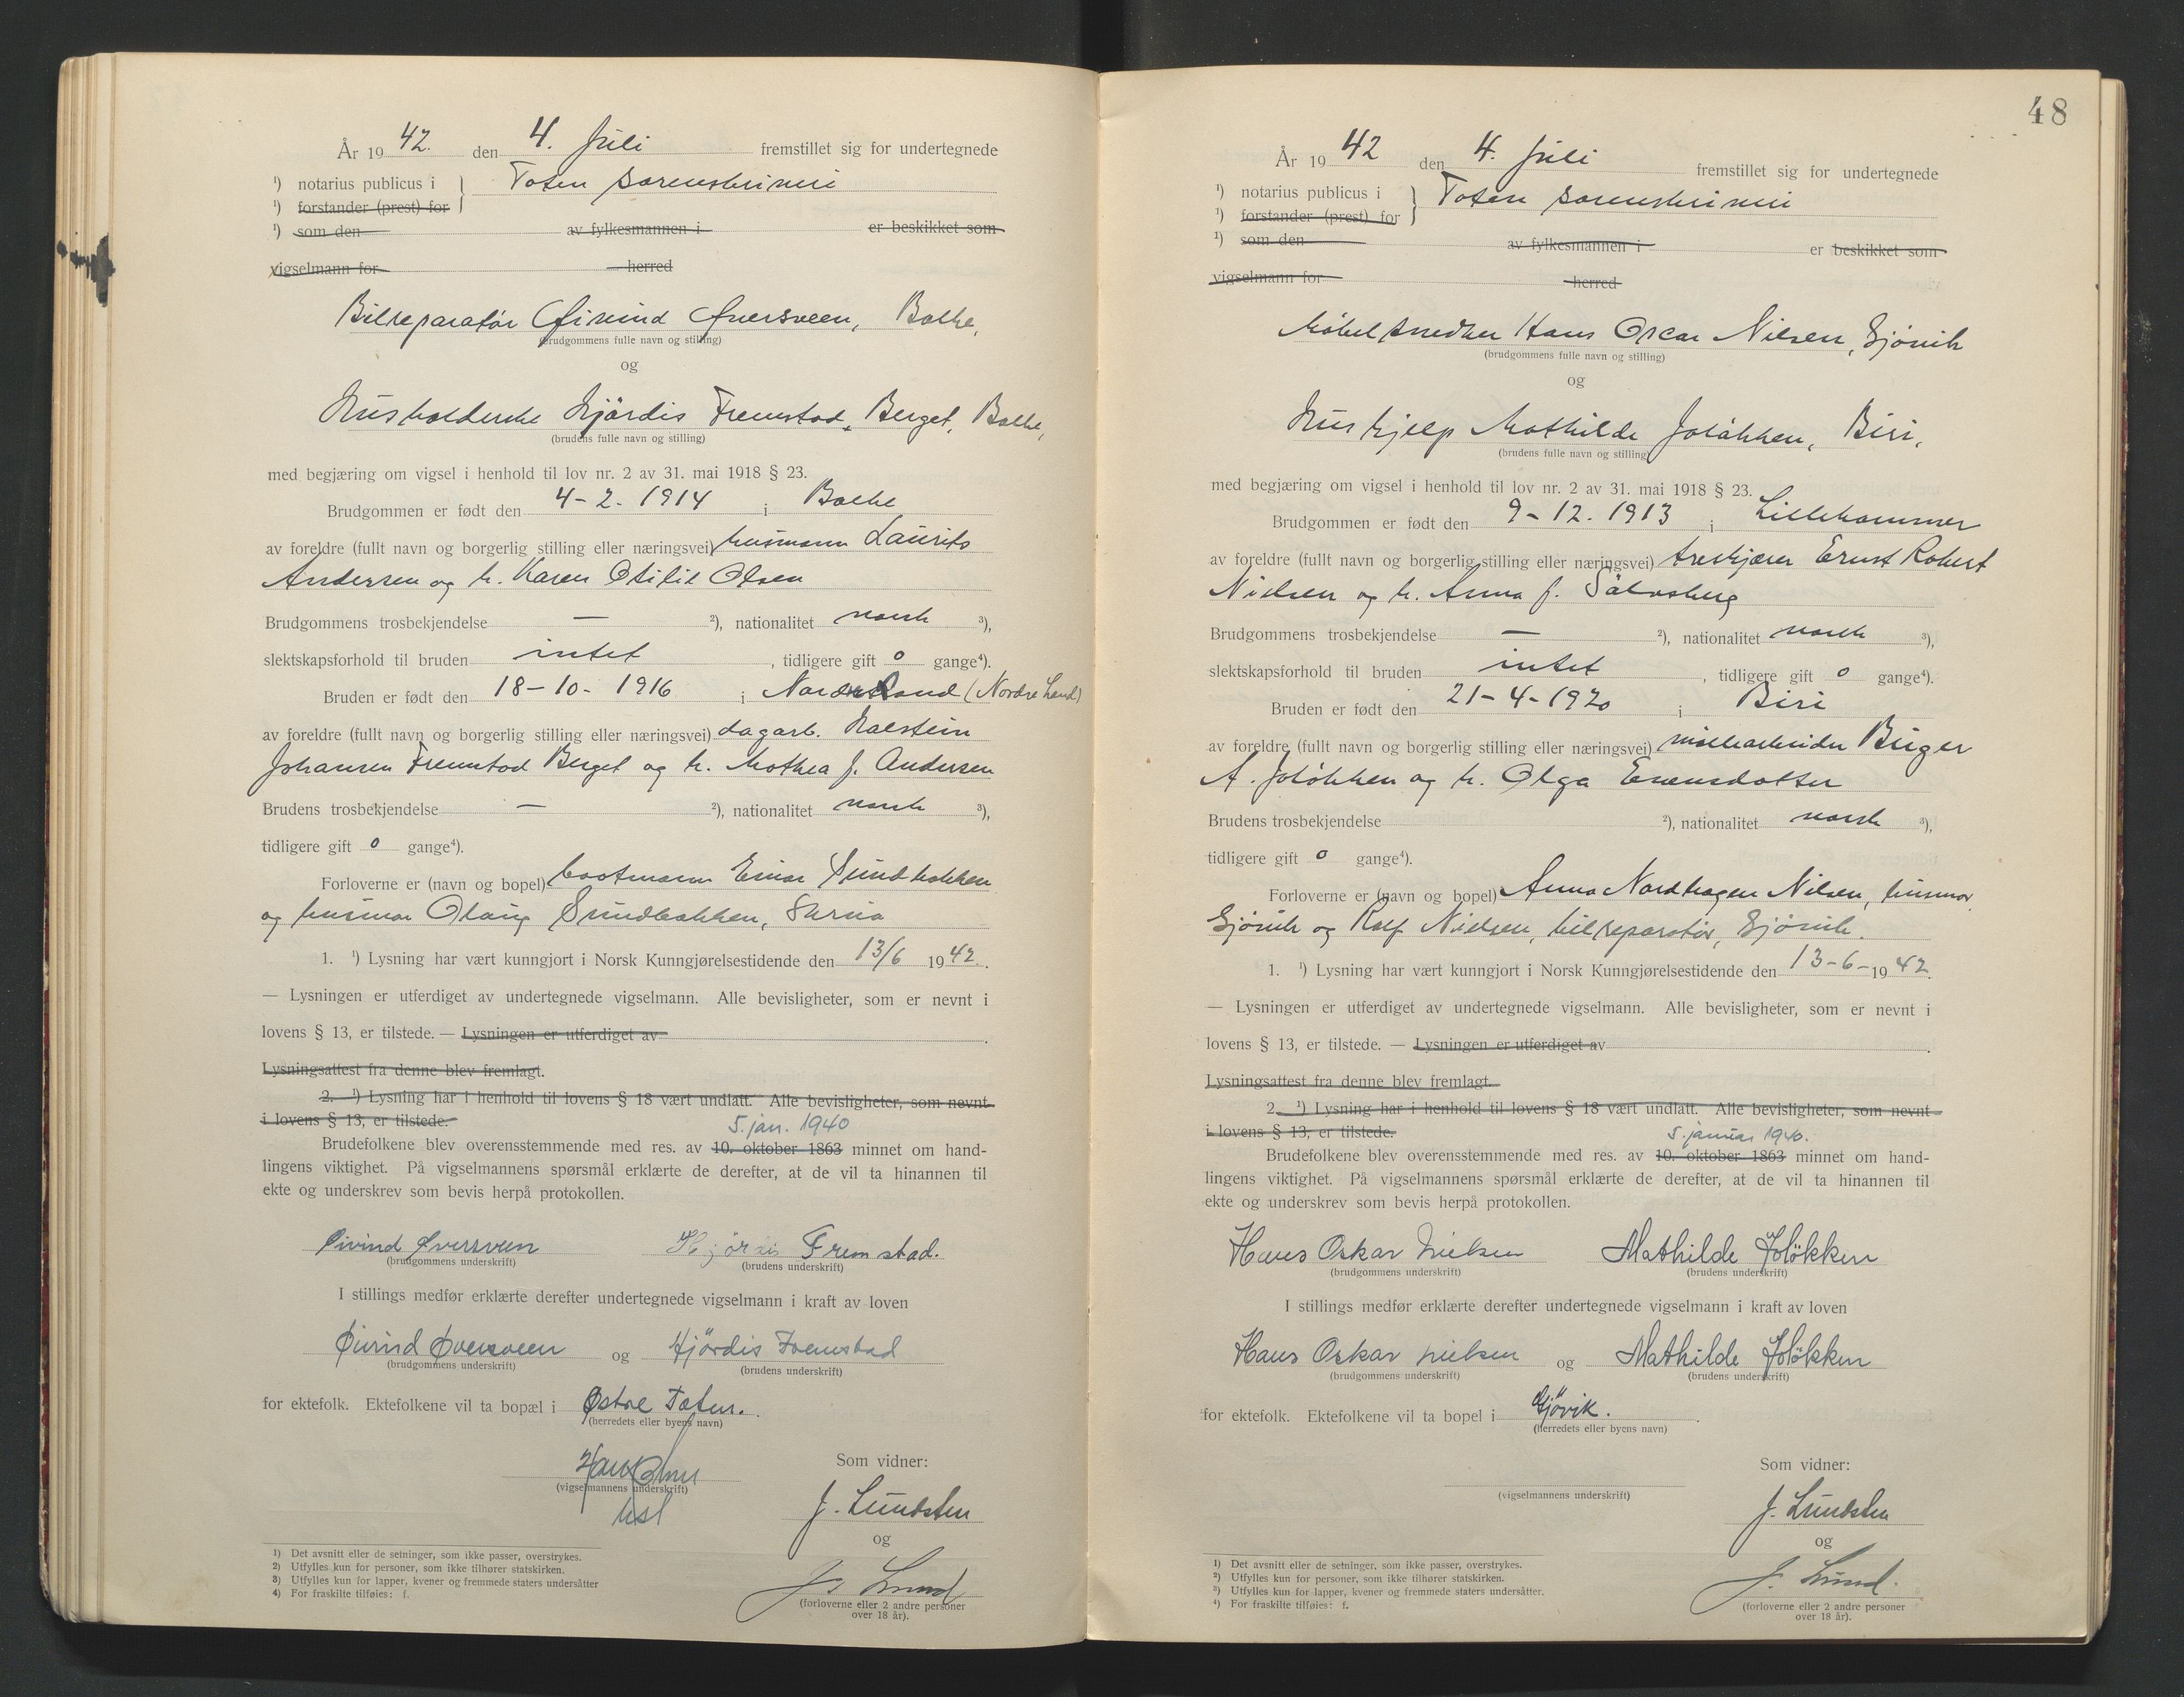 År 19 42. den 4. Juli fremstillet sig for undertegnede
¹) notarius publicus i } Toten sorenskriveri
¹) forstander (prest) for
¹) som den av fylkesmannen i er beskikket som
vigselmann for herred
Bilreparatør Øivind Øversveen, Balke,
(brudgommens fulle navn og stilling)
og
Husholderske Hjördis Fremstad, Berget, Balke,
(brudens fulle navn og stilling)
med begjæring om vigsel i henhold til lov nr. 2 av 31. mai 1918 § 23.
Brudgommen er født den 4-2-1914 i Balke
av foreldre (fullt navn og borgerlig stilling eller næringsvei) husmann Laurits
Andersen og h. Karen Otilie Olsen
Brudgommens trosbekjendelse — ²), nationalitet norsk ³),
slektskapsforhold til bruden intet, tidligere gift 0 gange⁴).
Bruden er født den 18-10-1916 i (Nordre Land)
av foreldre (fullt navn og borgerlig stilling eller næringsvei) dagarb. Halstein
Johansen Fremstad Berget og h. Mathea f. Andersen
Brudens trosbekjendelse — ²), nationalitet norsk ³),
tidligere gift 0 gange⁴).
Forloverne er (navn og bopel) Einar Sundbakken
og husmor Olaug Sundbakken, Skreia
1. ¹) Lysning har vært kunngjort i Norsk Kunngjørelsestidende den 13/6 1942.
— Lysningen er utferdiget av undertegnede vigselmann. Alle bevisligheter, som er nevnt i
lovens § 13, er tilstede. — Lysningen er utferdiget av .
Lysningsattest fra denne blev fremlagt.
2. ¹) Lysning har i henhold til lovens § 18 vært undlatt. Alle bevisligheter, som nevnt
i lovens § 13, er tilstede.
5. jan. 1940
Brudefolkene blev overensstemmende med res. av 10. oktober 1863 minnet om hand-
lingens viktighet. På vigselmannens spørsmål erklærte de derefter, at de vil ta hinannen til
ekte og underskrev som bevis herpå protokollen.
Øivind Øversveen Hjördis Fremstad.
(brudgommens underskrift) (brudens underskrift)
I stillings medfør erklærte derefter undertegnede vigselmann i kraft av loven
Øivind Øversveen og Hjördis Fremstad
(brudgommens underskrift) (brudens underskrift)
for ektefolk. Ektefolkene vil ta bopæl i Østre Toten.
(herredets eller byens navn)
Som vidner:
(vigselmannens underskrift)
J. Lundsten
og
J. Lund
(forloverne eller 2 andre personer
over 18 år).
¹) Det avsnitt eller de setninger, som ikke passer, overstrykes.
²) Utfylles kun for personer, som ikke tilhører statskirken.
³) Utfylles kun for lapper, kvener og fremmede staters undersåtter
⁴) For fraskilte tilføies: f.
48
År 19 42 den 4. Juli fremstillet sig for undertegnede
¹) notarius publicus i } Toten sorenskriveri
¹) forstander (prest) for
¹) som den av fylkesmannen i er beskikket som
vigselmann for herred
Møbelsnedker Hans Oscar Nilsen, Gjövik
(brudgommens fulle navn og stilling)
og
Hushjelp Mathilde Joløkken, Biri,
(brudens fulle navn og stilling)
med begjæring om vigsel i henhold til lov nr. 2 av 31. mai 1918 § 23.
Brudgommen er født den 9-12-1913 i Lillehammer
av foreldre (fullt navn og borgerlig stilling eller næringsvei) treskjærer Ernst Robert
Nielsen og h. Anna f. Sålvsberg
Brudgommens trosbekjendelse — ²), nationalitet norsk ³),
slektskapsforhold til bruden intet, tidligere gift 0 gange⁴).
Bruden er født den 21-4-1920 i Biri
av foreldre (fullt navn og borgerlig stilling eller næringsvei) Birger
A. Joløkken og h. Olga Evensdatter
Brudens trosbekjendelse ²), nationalitet norsk ³),
tidligere gift 0 gange⁴).
Forloverne er (navn og bopel) Anna Nordhagen Nilsen, husmor,
Gjövik og Rolf Nielsen, bilreparatör, Gjövik.
1. ¹) Lysning har vært kunngjort i Norsk Kunngjørelsestidende den 13-6-1942.
— Lysningen er utferdiget av undertegnede vigselmann. Alle bevisligheter, som er nevnt i
lovens § 13, er tilstede. — Lysningen er utferdiget av .
Lysningsattest fra denne blev fremlagt.
2. ¹) Lysning har i henhold til lovens § 18 vært undlatt. Alle bevisligheter, som nevnt
i lovens § 13, er tilstede.
5. januar 1940.
Brudefolkene blev overensstemmende med res. av 10. oktober 1863 minnet om hand-
lingens viktighet. På vigselmannens spørsmål erklærte de derefter, at de vil ta hinannen til
ekte og underskrev som bevis herpå protokollen.
Hans Oskar Nielsen Mathilde Joløkken
(brudgommens underskrift) (brudens underskrift)
I stillings medfør erklærte derefter undertegnede vigselmann i kraft av loven
Hans Oskar Nielsen og Mathilde Joløkken
(brudgommens underskrift) (brudens underskrift)
for ektefolk. Ektefolkene vil ta bopel i Gjövik.
(herredets eller byens navn)
Som vidner:
(vigselmannens underskrift)
J. Lundsten
og
J. Lund.
(forloverne eller 2 andre personer
over 18 år).
¹) Det avsnitt eller de setninger, som ikke passer, overstrykes.
²) Utfylles kun for personer, som ikke tilhører statskirken.
³) Utfylles kun for lapper, kvener og fremmede staters undersåtter.
⁴) For fraskilte tilføies: f.